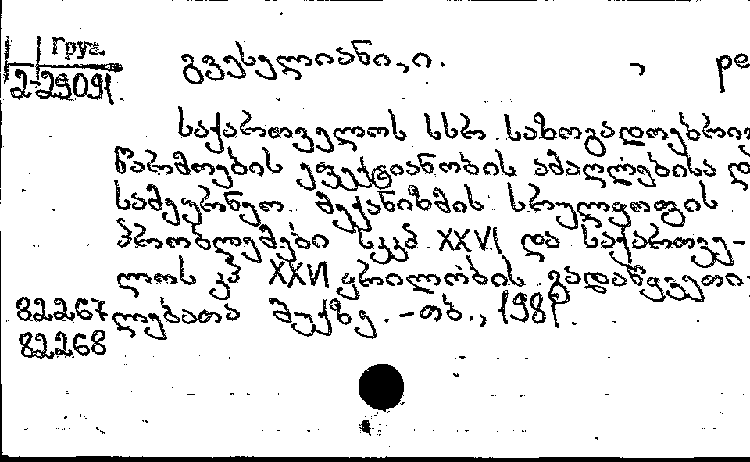 Груз.
2-29091.
გვესელიანი, ი. , ре
საქართველოს სსრ საზოგადოებრივ
წარმოების ეფექტიანობის ამაღლებისა დ
სამეურნეო მექანიზმის სრულყოფის
პრობლემები სკკპ XXVI და საქართვე-
ლოს კპ XXVI ყრილობის გადაწყვეტი-
82267 ლებათა შუქზე. -თბ., 1981.
82268